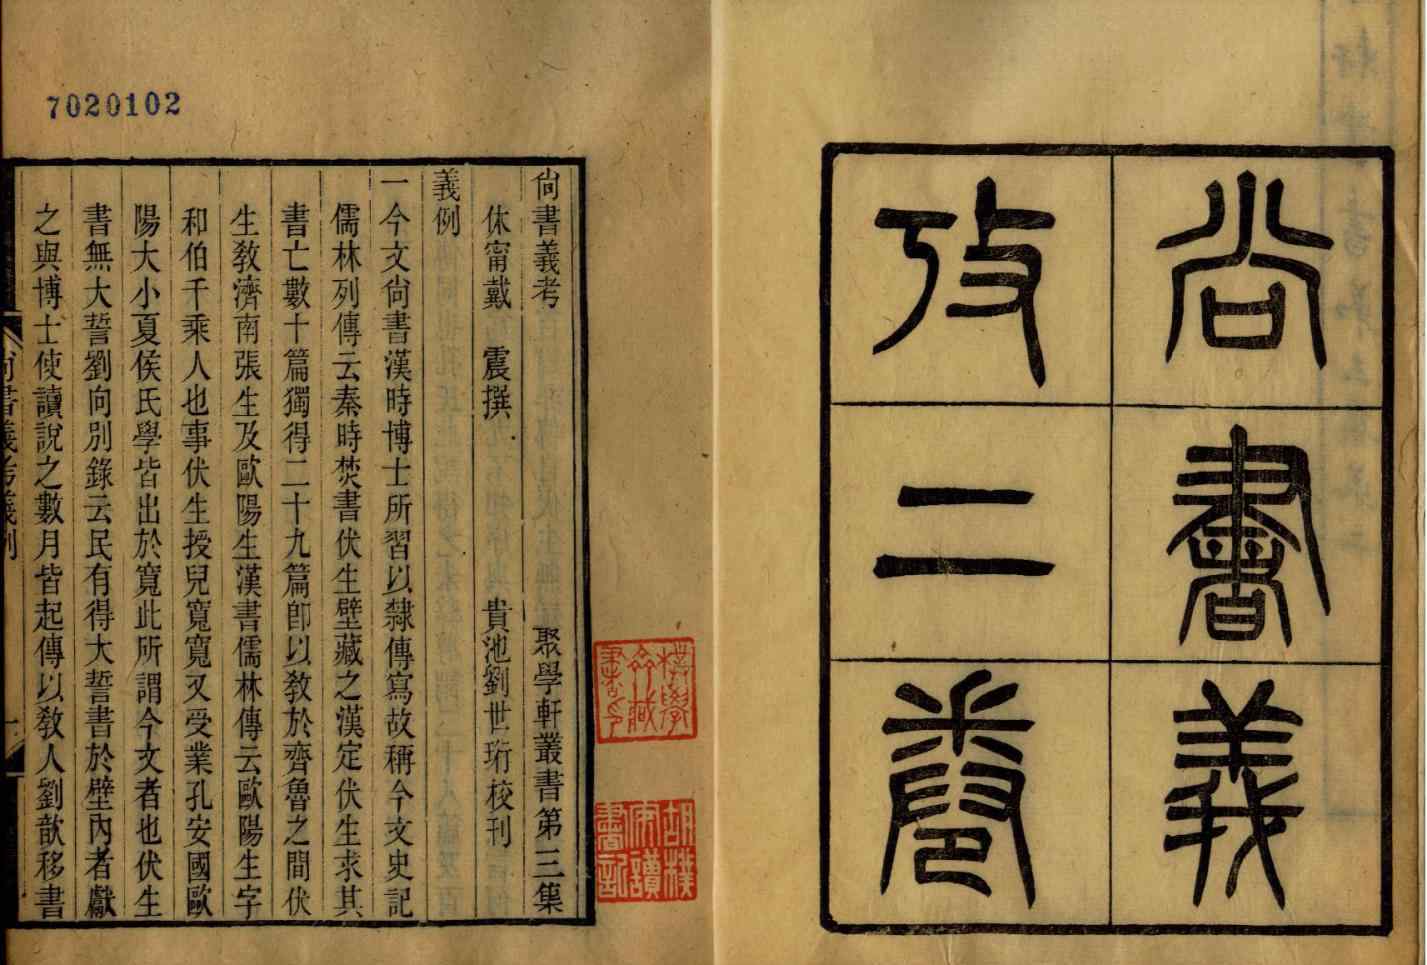 尚書義
攷二卷
7020102
尙書義考 聚學軒叢書第三集
休甯戴 震撰 貴池劉世珩校刊
義例
一今文尙書漢時博士所習以隸傳寫故稱今文史記
儒林列傳云秦時焚書伏生壁藏之漢定伏生求其
書亡數十篇獨得二十九篇卽以敎於齊魯之間伏
生敎濟南張生及歐陽生漢書儒林傳云歐陽生字
和伯千乘人也事伏生授兒寬寬又受業孔安國歐
陽大小夏侯氏學皆出於寬此所謂今文者也伏生
書無大誓劉向別錄云民有得大誓書於壁內者獻
之與博士使讀說之數月皆起傳以敎人劉歆移書
尙書義考義例 一
樸學
齋藏
書印
胡樸
安讀
書記